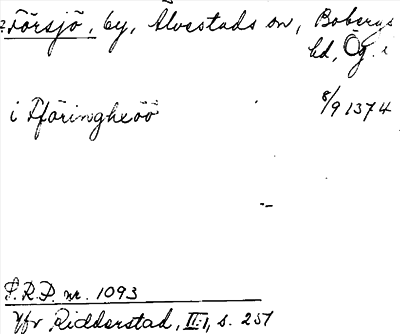 Försjö, by, Älvestads sn, Bobergs
hd, Ög.
8/9 1374
i Fföringheöö
P.R.P. nr. 1093
Jfr Ridderstad, II:1, s. 251